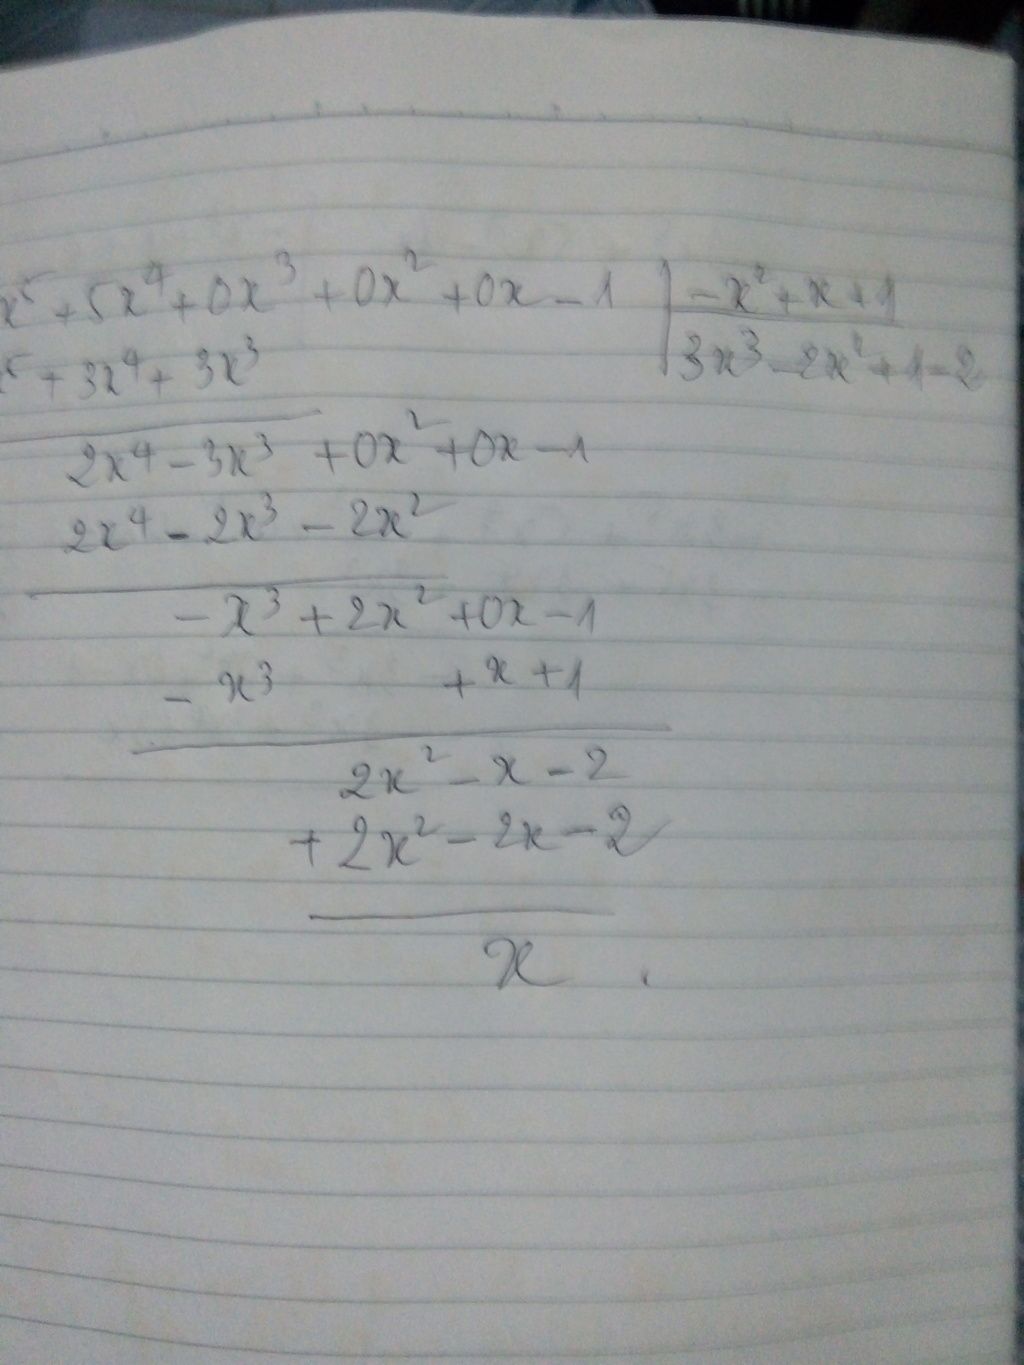 x⁵ + 5x⁴ + 0x³ + 0x² + 0x - 1 | -x² + x + 1
⁵ + 3x⁴ + 3x³ | 3x³ - 2x² + 1 - 2
2x⁴ - 3x³ + 0x² + 0x - 1
2x⁴ - 2x³ - 2x²
- x³ + 2x² + 0x - 1
- x³ + x + 1
2x² - x - 2
+ 2x² - 2x - 2
x .